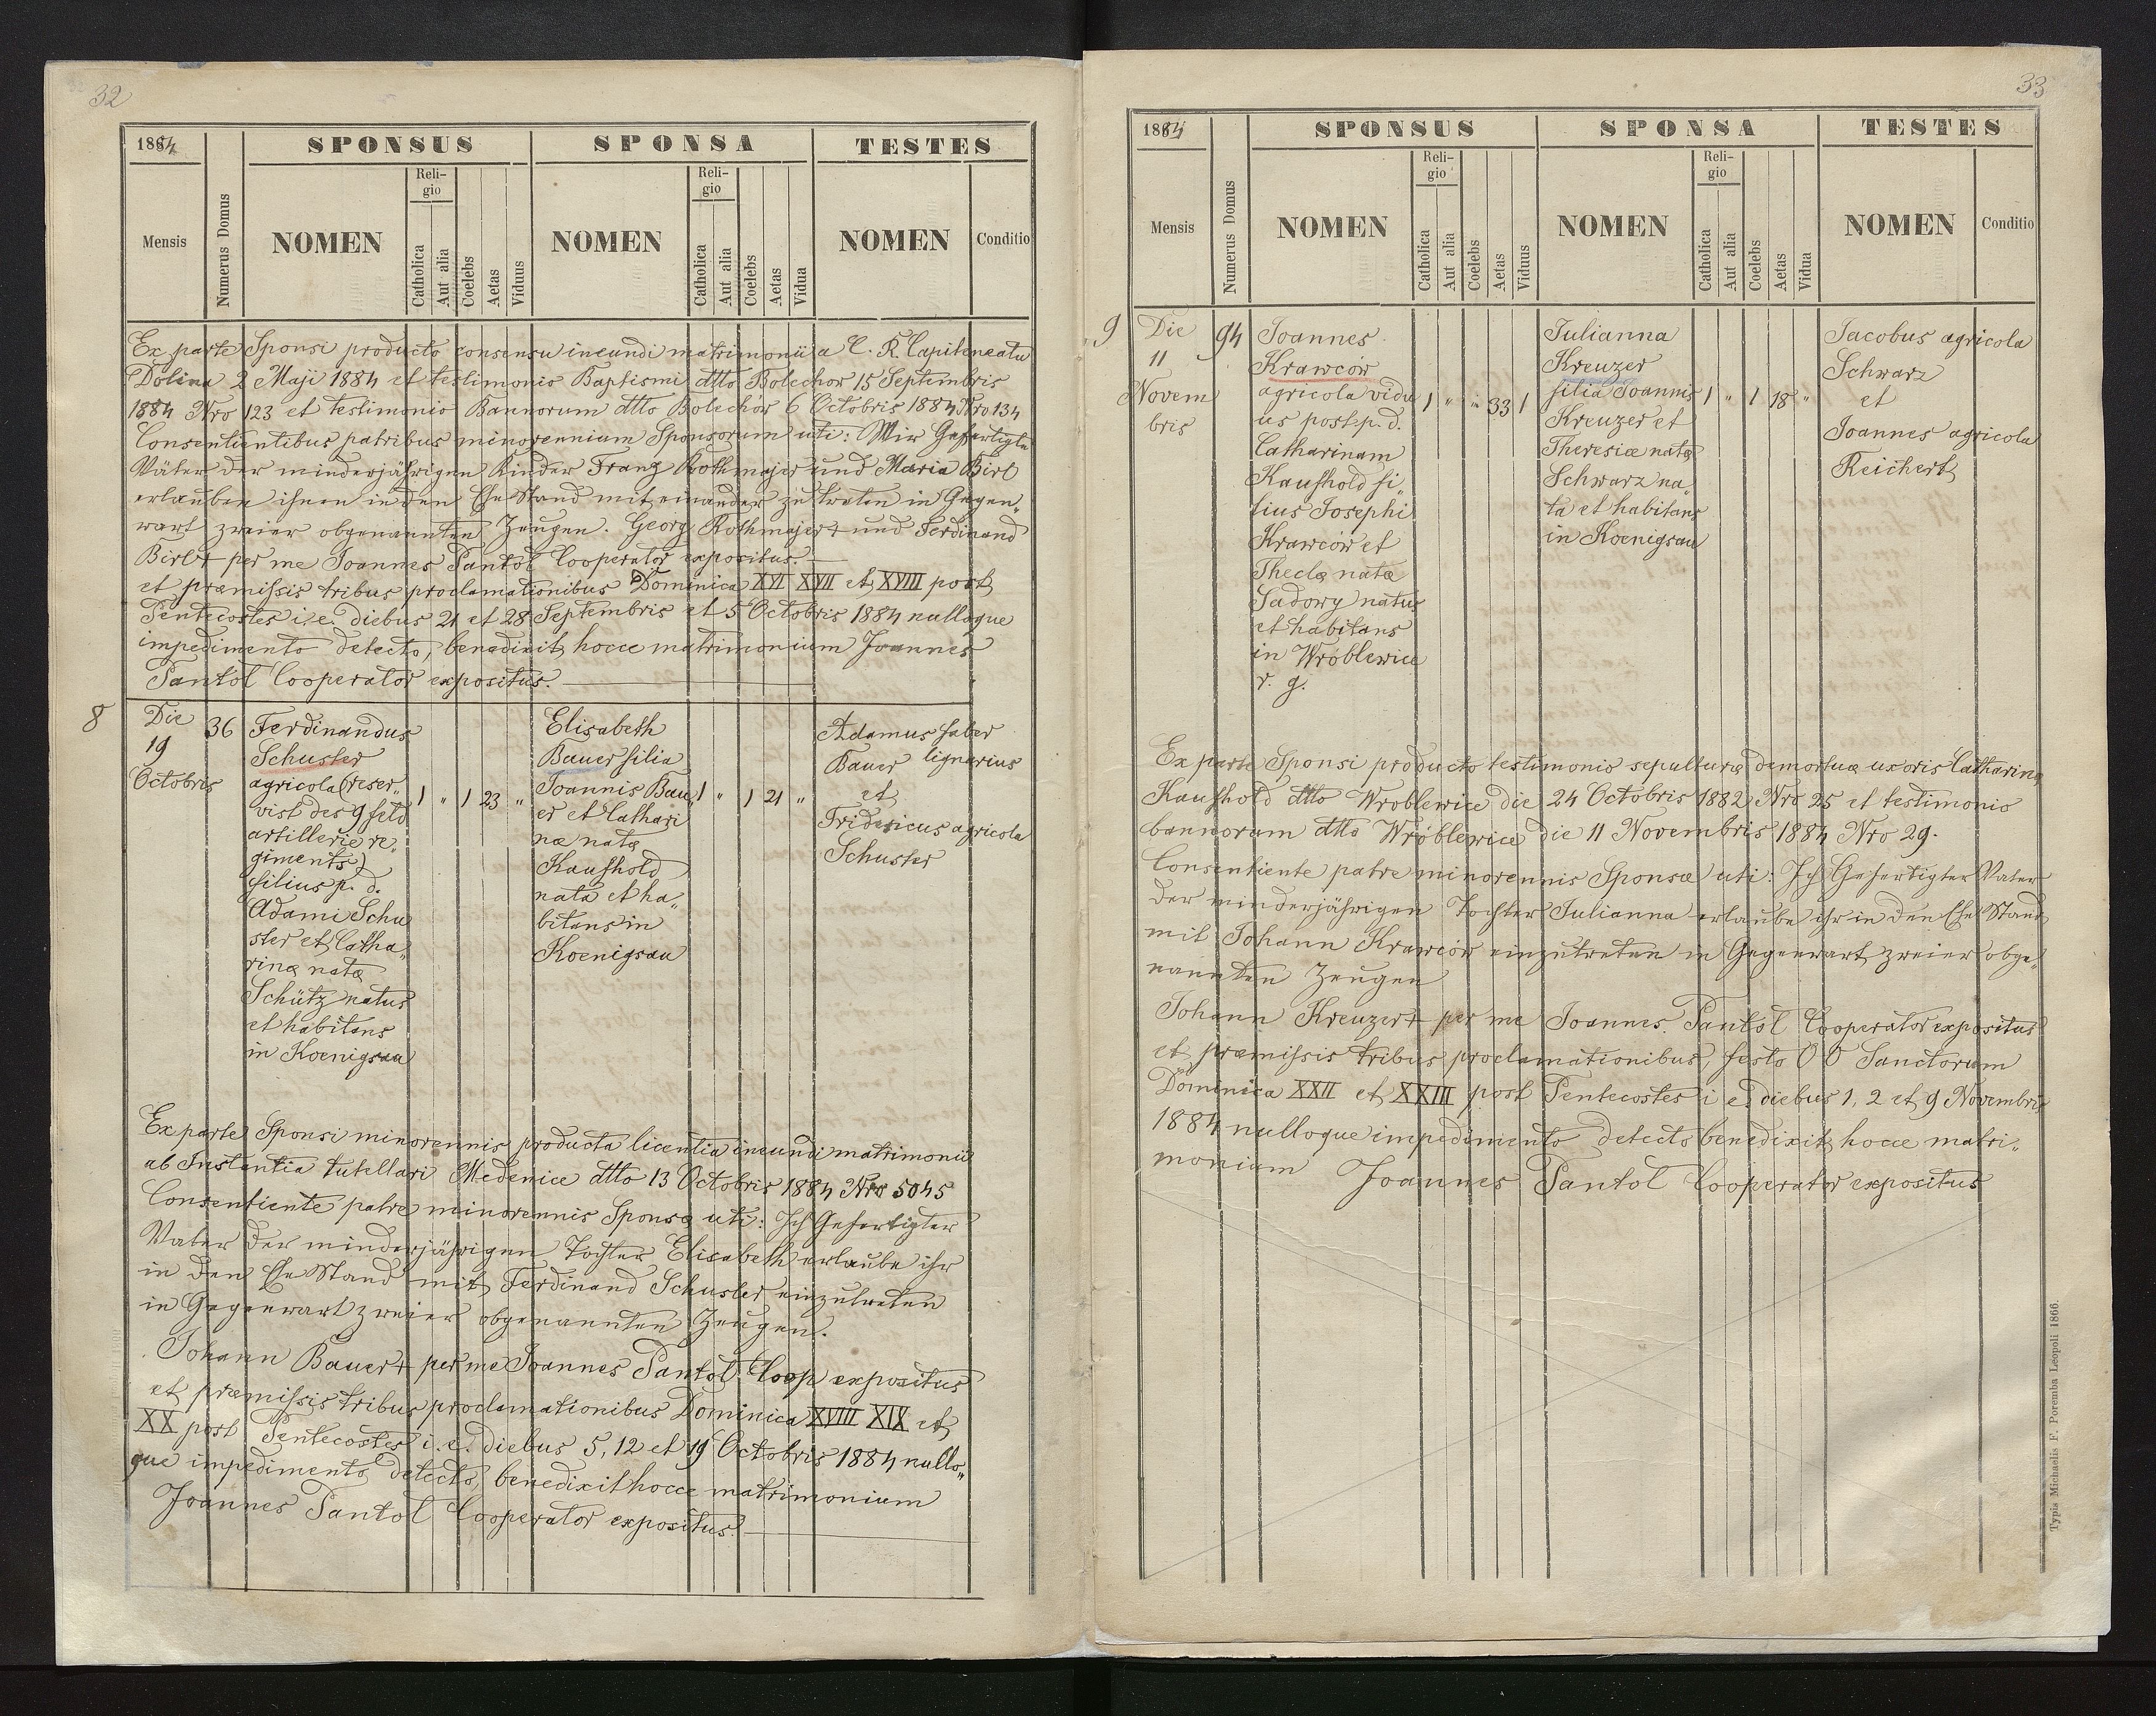 32
1884
SPONSUS
SPONSA
TESTES
Mensis
Numerus Domus
NOMEN
Reli-
gio
Catholica
Aut alia
Coelebs
Aetas
Viduus
NOMEN
Reli-
gio
Catholica
Aut alia
Coelebs
Aetas
Vidua
NOMEN
Conditio
Ex parte Sponsi producto consensu ineundi matrimonii a C. R. Capiteneatu
Dolina 2 Maji 1884 et testimonio Baptismi dtto Bolechow 15 Septembris
1884 Nro 123 et testimonio Bannorum dtto Bolechów 6 Octobris 1884 Nro 134
Consentientibus patribus minorennium Sponsorum uti: Wir Gefertigte
Väter der minderjährigen Kinder Franz Rothmajer und Maria Birl
erlauben ihnen in den Ehe Stand mit einander zu treten in Gegen„
wart zweier obgenannten Zeugen. Georg Rothmajer + und Ferdinand
Birl + per me Joannes Pantoł Cooperator expositus.
et præmissis tribus proclamationibus Dominica XVI XVII et XVIII post
Pentecostes i. e. diebus 21 et 28 Septembris et 5 Octobris 1884 nulloque
impedimento detecto, benedixit hocce matrimonium Joannes
Pantoł Cooperator expositus.
8
Die
19
Octobris
36
Ferdinandus
Schuster
agricola (reser„
vist des 9 feld
artillerie re„
giments)
filius p. d.
Adami Schu
ster et Catha„
rinæ natæ
Schütz natus
et habitans
in Koenigsau
1 „ 1 23 „
Elisabeth
Bauer filia
Joannis Bau„
er et Cathari
næ natæ
Kaufhold
nata et ha„
bitans in
Koenigsau
1 „ 1 21 „
Adamus faber
Bauer lignarius
et
Fridericus agricola
Schuster
Ex parte Sponsi minorennis producta licentia ineundi matrimonii
ab Instantia tutellari Medenice dtto 13 Octobris 1884 Nro 5045
Consentiente patre minorennis Sponsæ uti: Ich Gefertigter
Vater der minderjährigen Tochter Elisabeth erlaube ihr
in den Ehe Stand mit Ferdinand Schuster einzutreten
in Gegenwart zweier obgenannten Zeugen.
Johann Bauer + per me Joannes Pantoł Coop expositus
et præmissis tribus proclamationibus Dominica XVIII XIX et
XX post Pentecostes i. e. diebus 5, 12 et 19 Octobris 1884 nullo„
que impedimento detecto, benedixit hocce matrimonium
Joannes Pantoł Cooperator expositus.
33
1884
SPONSUS
SPONSA
TESTES
Mensis
Numerus Domus
NOMEN
Reli-
gio
Catholica
Aut alia
Coelebs
Aetas
Viduus
NOMEN
Reli-
gio
Catholica
Aut alia
Coelebs
Aetas
Vidua
NOMEN
Conditio
9
Die
11
Novem
bris
94
Joannes
Krawców
agricola vidu
us post p. d.
Catharinam
Kaufhold fi„
lius Josephi
Krawców et
Theclæ natæ
Sadowy natus
et habitans
in Wróblewice
r. g.
1 „ „ 33 1
Julianna
Kreuzer
filia Joannis
Kreuzer et
Theresiæ natæ
Schwarz na„
ta et habitans
in Koenigsau
1 „ 1 18 „
Jacobus agricola
Schwarz
et
Joannes agricola
Reichert
Ex parte Sponsi producto testimonio sepulturæ demortuæ uxoris Catharinæ
Kaufhold dtto Wroblewice die 24 Octobris 1882 Nro 25 et testimonio
bannorum dtto Wróblewice die 11 Novembris 1884 Nro 29.
Consentiente patre minorennis Sponsæ uti: Ich Gefertigter Vater
der minderjährigen Tochter Julianna erlaube ihr in den Ehe Stand
mit Johann Krawców einzutreten in Gegenwart zweier obge„
nannten Zeugen
Johann Kreuzer + per me Joannes Pantoł Cooperator expositus
et præmissis tribus proclamationibus, festo O O Sanctorum
Dominica XXII et XXIII post Pentecostes i e. diebus 1, 2 et 9 Novembris
1884 nulloque impedimento detecto benedixit hocce matri„
monium Joannes Pantoł Cooperator expositus
Typis Michaelis F. Poremba Leopoli 1866.